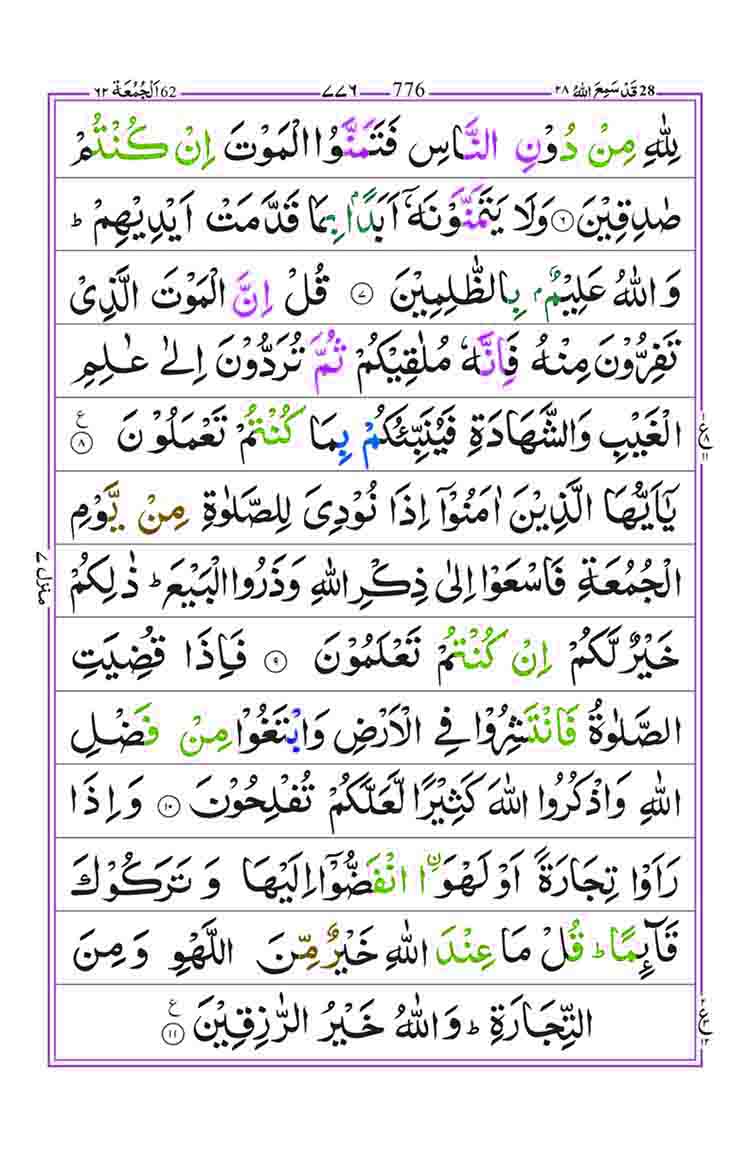 28 قَدْ سَمِعَ اللّٰهُ ٢٨ 776 ٧٧٦ 62 اَلْجُمُعَة ٦٢
لِلّٰهِ مِنْ دُوْنِ النَّاسِ فَتَمَنَّوُا الْمَوْتَ اِنْ كُنْتُمْ
صٰدِقِيْنَ ۝٦ وَلَا يَتَمَنَّوْنَهٗۤ اَبَدًۢا بِمَا قَدَّمَتْ اَيْدِيْهِمْ ؕ
وَاللّٰهُ عَلِيْمٌۢ بِالظّٰلِمِيْنَ ۝٧ قُلْ اِنَّ الْمَوْتَ الَّذِيْ
تَفِرُّوْنَ مِنْهُ فَاِنَّهٗ مُلٰقِيْكُمْ ثُمَّ تُرَدُّوْنَ اِلٰى عٰلِمِ
الْغَيْبِ وَالشَّهَادَةِ فَيُنَبِّئُكُمْ بِمَا كُنْتُمْ تَعْمَلُوْنَ ۝٨ ع
يٰۤاَيُّهَا الَّذِيْنَ اٰمَنُوْۤا اِذَا نُوْدِيَ لِلصَّلٰوةِ مِنْ يَّوْمِ
الْجُمُعَةِ فَاسْعَوْا اِلٰى ذِكْرِ اللّٰهِ وَذَرُوا الْبَيْعَ ؕ ذٰلِكُمْ
خَيْرٌ لَّكُمْ اِنْ كُنْتُمْ تَعْلَمُوْنَ ۝٩ فَاِذَا قُضِيَتِ
الصَّلٰوةُ فَانْتَشِرُوْا فِي الْاَرْضِ وَابْتَغُوْا مِنْ فَضْلِ
اللّٰهِ وَاذْكُرُوا اللّٰهَ كَثِيْرًا لَّعَلَّكُمْ تُفْلِحُوْنَ ۝١٠ وَاِذَا
رَاَوْا تِجَارَةً اَوْ لَهْوَا ۨانْفَضُّوْۤا اِلَيْهَا وَتَرَكُوْكَ
قَآئِمًا ؕ قُلْ مَا عِنْدَ اللّٰهِ خَيْرٌ مِّنَ اللَّهْوِ وَمِنَ
التِّجَارَةِ ؕ وَاللّٰهُ خَيْرُ الرّٰزِقِيْنَ ۝١١ ع
منزل ٧